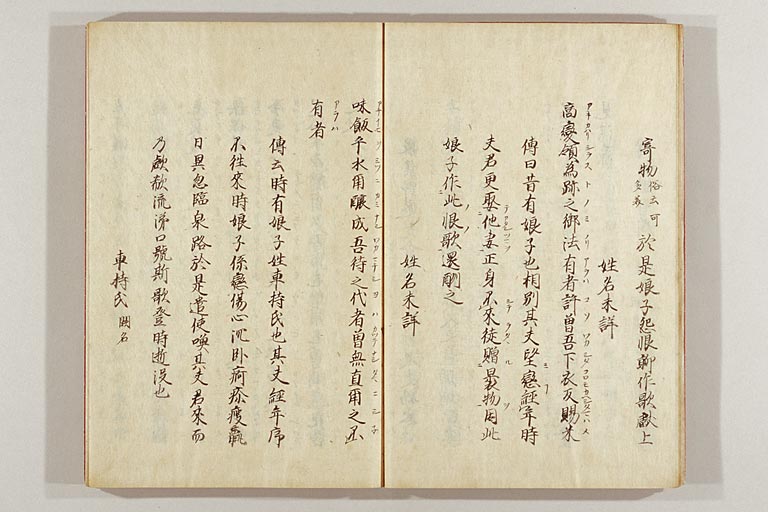 寄物 俗云可多美 於是娘子怨恨聊作歌獻上
姓名未詳
商變領為跡之御法有者許曽吾下衣反賜米
傳曰昔有娘子也相別其夫望戀經年時
夫君更娶他妻正身不來徒贈裹物因此
娘子作此恨歌還酬之
姓名未詳
味飯乎水尓醸成吾待之代者曽無直尓之不
有者
傳云時有娘子姓車持氏也其夫經年序
不往來時娘子係戀傷心沉卧痾疹痩羸
日異忽臨泉路於是遣使喚其夫君來而
乃歔欷流涕口號斯歌登時逝没也
車持氏 闕名